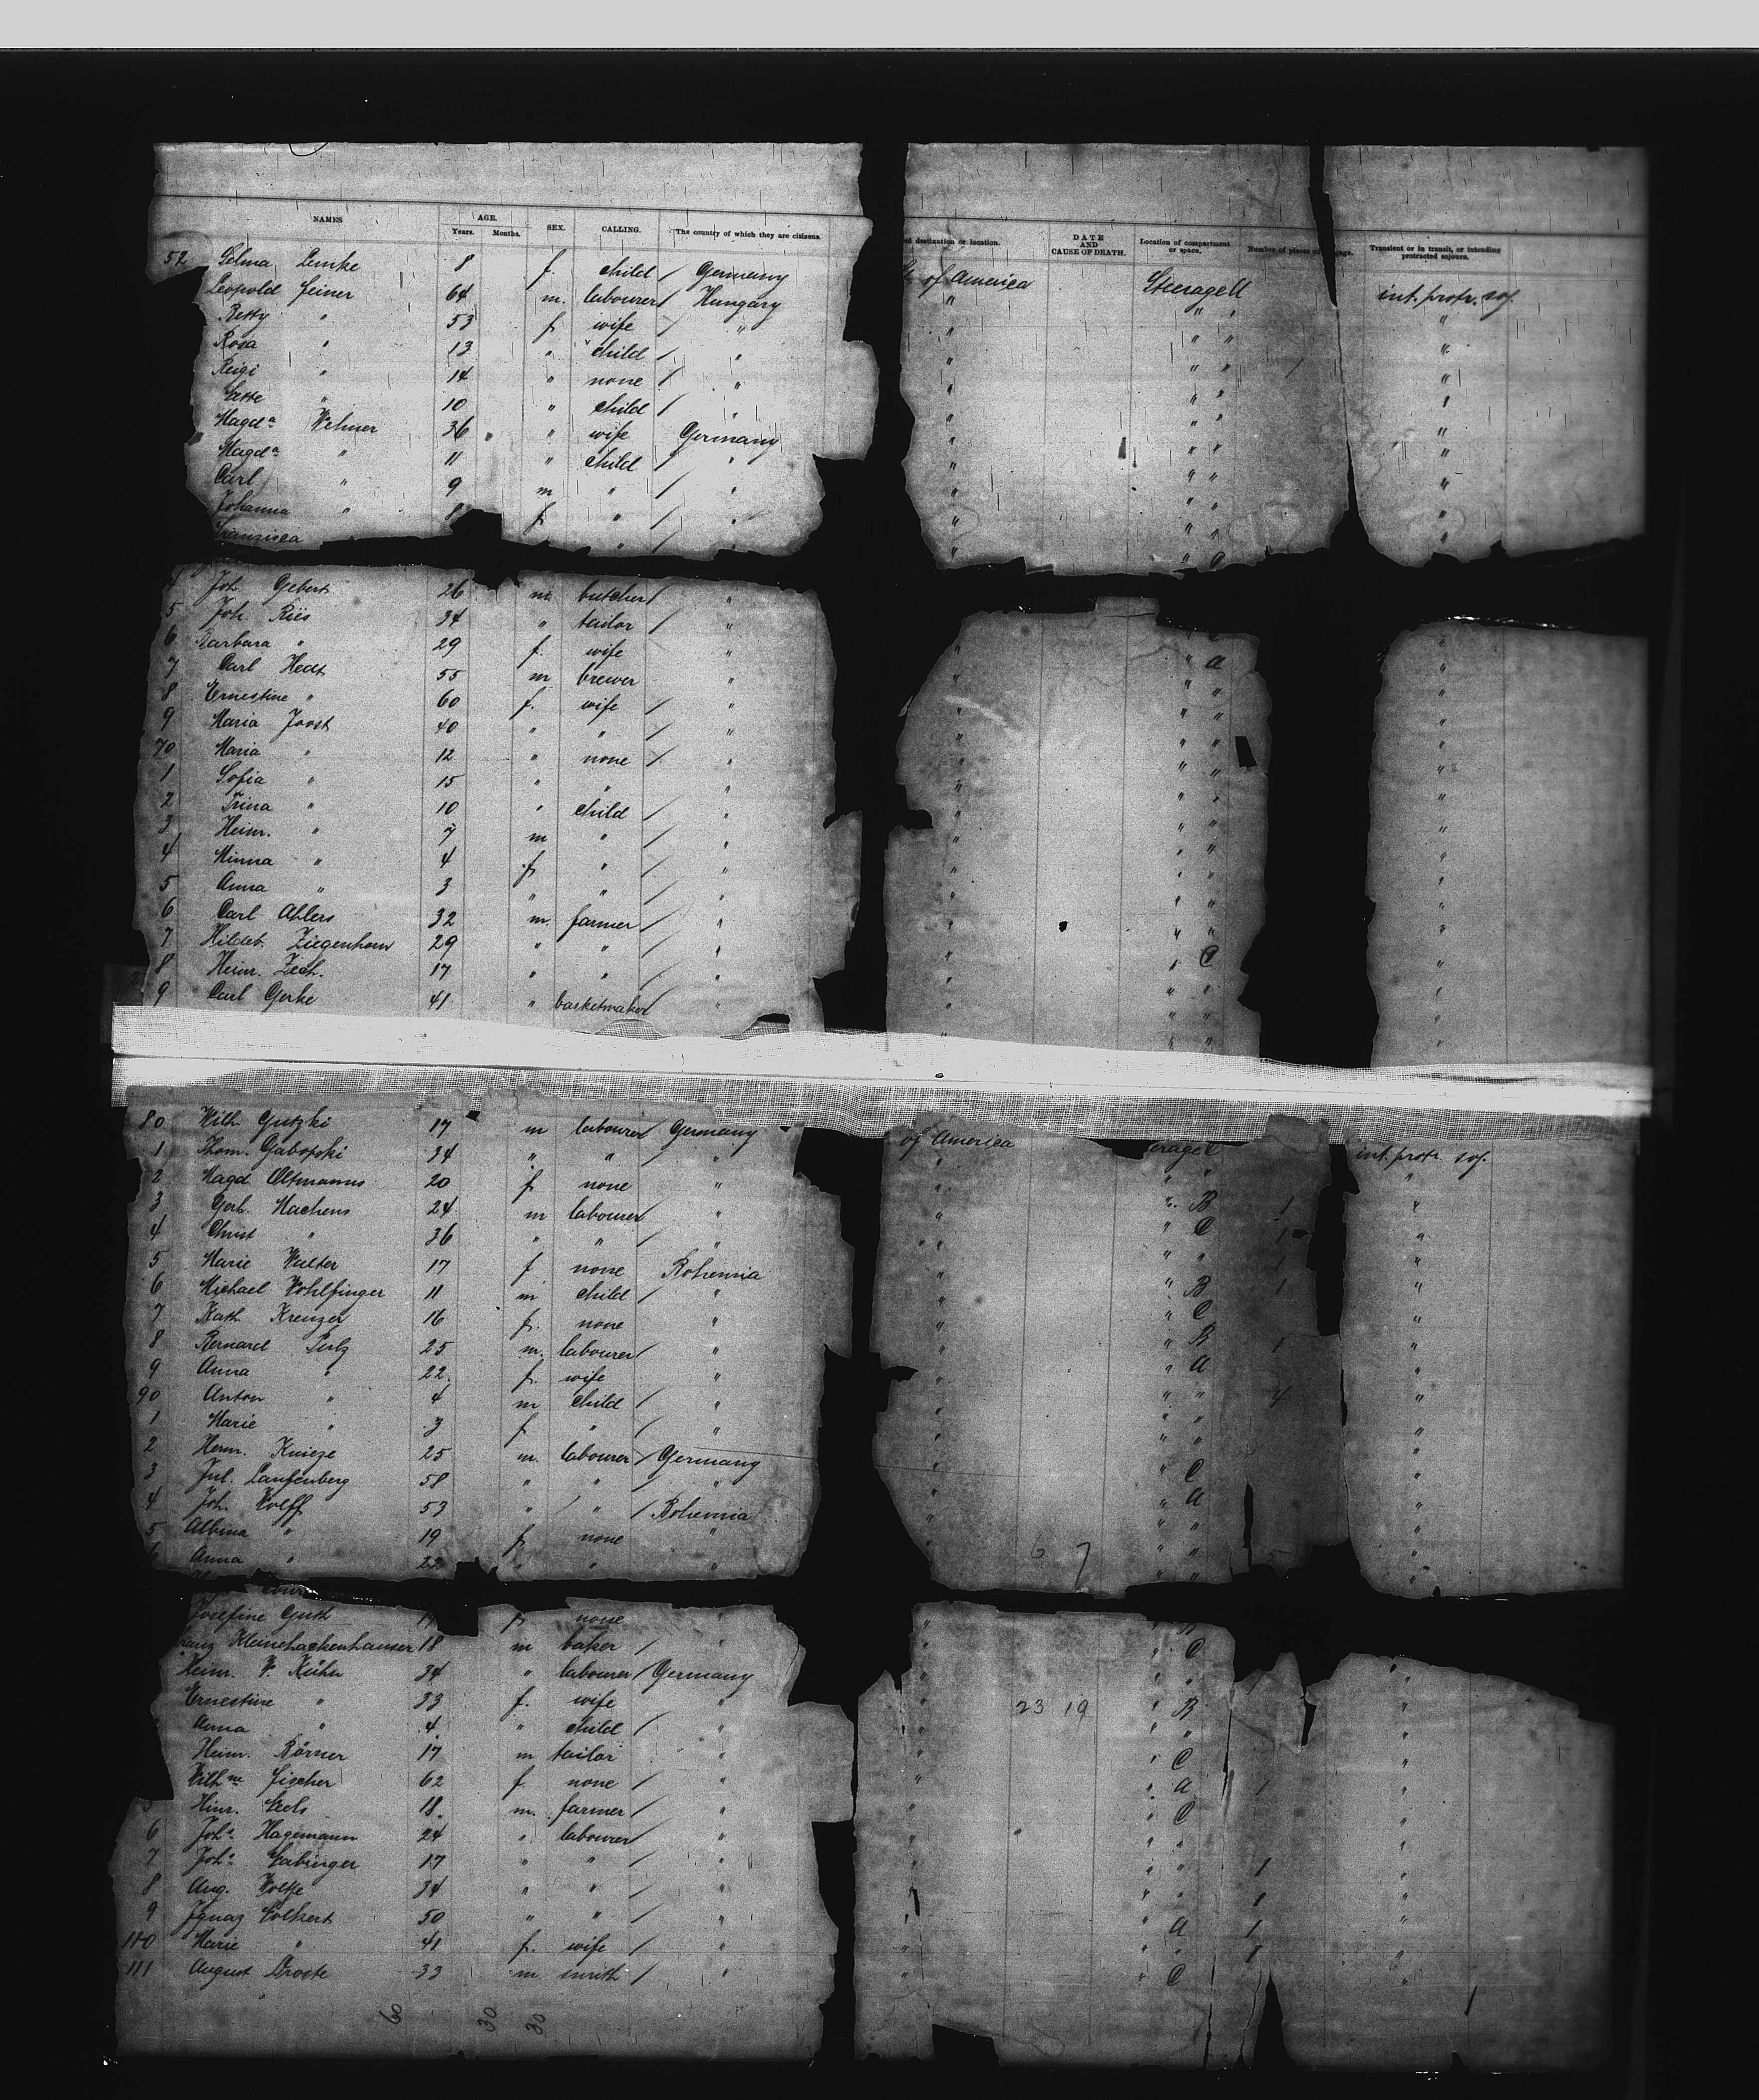 NAMES AGE. Years. Months. SEX. CALLING. The country of which they are citizens. destination or location. DATE AND CAUSE OF DEATH. Location of compartment or space. Number of pieces of Transient or in transit, or intending protracted sojourn.
52 Selma Lemke 8 f. child / Germany of America Steerage int. protr. soj.
Leopold Feiner 64 m. labourer / Hungary " " " "
Betty " 53 f. wife / " " " " "
Rosa " 13 " child / " " " " "
" 14 " none / " " " " "
" 10 " child / " " " " "
Magda Wehner 36 " wife Germany " " " "
Magda " 11 " child / " " " " "
Carl " 9 m " / " " " " "
Johanna " 8 f " / " " " " "
Franzisca " / "
Joh. Gebert 26 m butcher / "
5 Joh. Ries 34 " tailor / " " " a "
6 Barbara " 29 f. wife " " " " "
7 Carl Hedt 55 m brewer " " " " "
8 Ernestine " 60 f. wife / " " " " "
9 Maria Joost 40 " " / " " " " "
70 Maria " 12 " none / " " " " "
1 Sofia " 15 " " " " " " "
2 Trina " 10 " child / " " " " "
3 Heinr. " 7 m " / " " " " "
4 Minna " 4 f " / " " " " "
5 Anna " 3 " " / " " " " "
6 Carl Ahlers 32 m. farmer / " " " C "
7 Hildeb. Ziegenhorn 29 " " / " " " " "
8 Heinr. Zech. 17 " " / " " " " "
9 Carl Gerke 41 " basketmaker / " " " " "
80 Wilh. Gutzki 17 m labourer / Germany of America erage C int. protr. soj.
1 Thom. 34 " " / " " " " "
2 Magd Oltmanns 20 f none " " " B 1 "
3 Gerh. Machens 24 m labourer / " " " C 1 "
4 Christ " 36 " " / " " " " 1 "
5 Marie Walter 17 f none Bohemia " " B 1 "
6 Michael Wohlfinger 11 m child / " " " C "
7 Kath Kreuzer 16 f. none " " " B 1 "
8 Bernard 25 m. labourer / " " " a "
9 Anna " 22 f. wife " " " " 4 "
90 Anton " 4 m child / " " " " "
1 Marie " 3 f " / " " " " "
2 Herm. Knieze 25 m. labourer / Germany " " C "
3 Jul. Laufenberg 58 " " / " " " a "
4 Joh. Wolff 53 " / " / Bohemia " " " "
5 Albina " 19 f none " " 6 7 " " 5 "
6 Anna " 22 " " " " " "
Josefine Guth f none " " B
Kleinehackenhauser 18 m baker / " " " C
Heinr. W. Kühn 34 " labourer / Germany " " " "
Ernestine " 33 f. wife " " 23 19 " B "
Anna " 4 " child / " " " " "
Heinr. Börner 17 m tailor " " " C "
Wilhne Fischer 62 f none / " " " a 1 "
Hinr. 18 m. farmer / " " " C "
6 Joha. Hagemann 24 " labourer / " " " " "
7 Joha. 17 " " / " " " " 1 "
8 Aug. 34 " " / " " " " 1 "
9 Ignaz Volkert 50 " " / " " " a 1 "
110 Marie " 41 f. wife / " " " " 1 "
111 August Droste 33 m smith / " " " C "
60 30 30